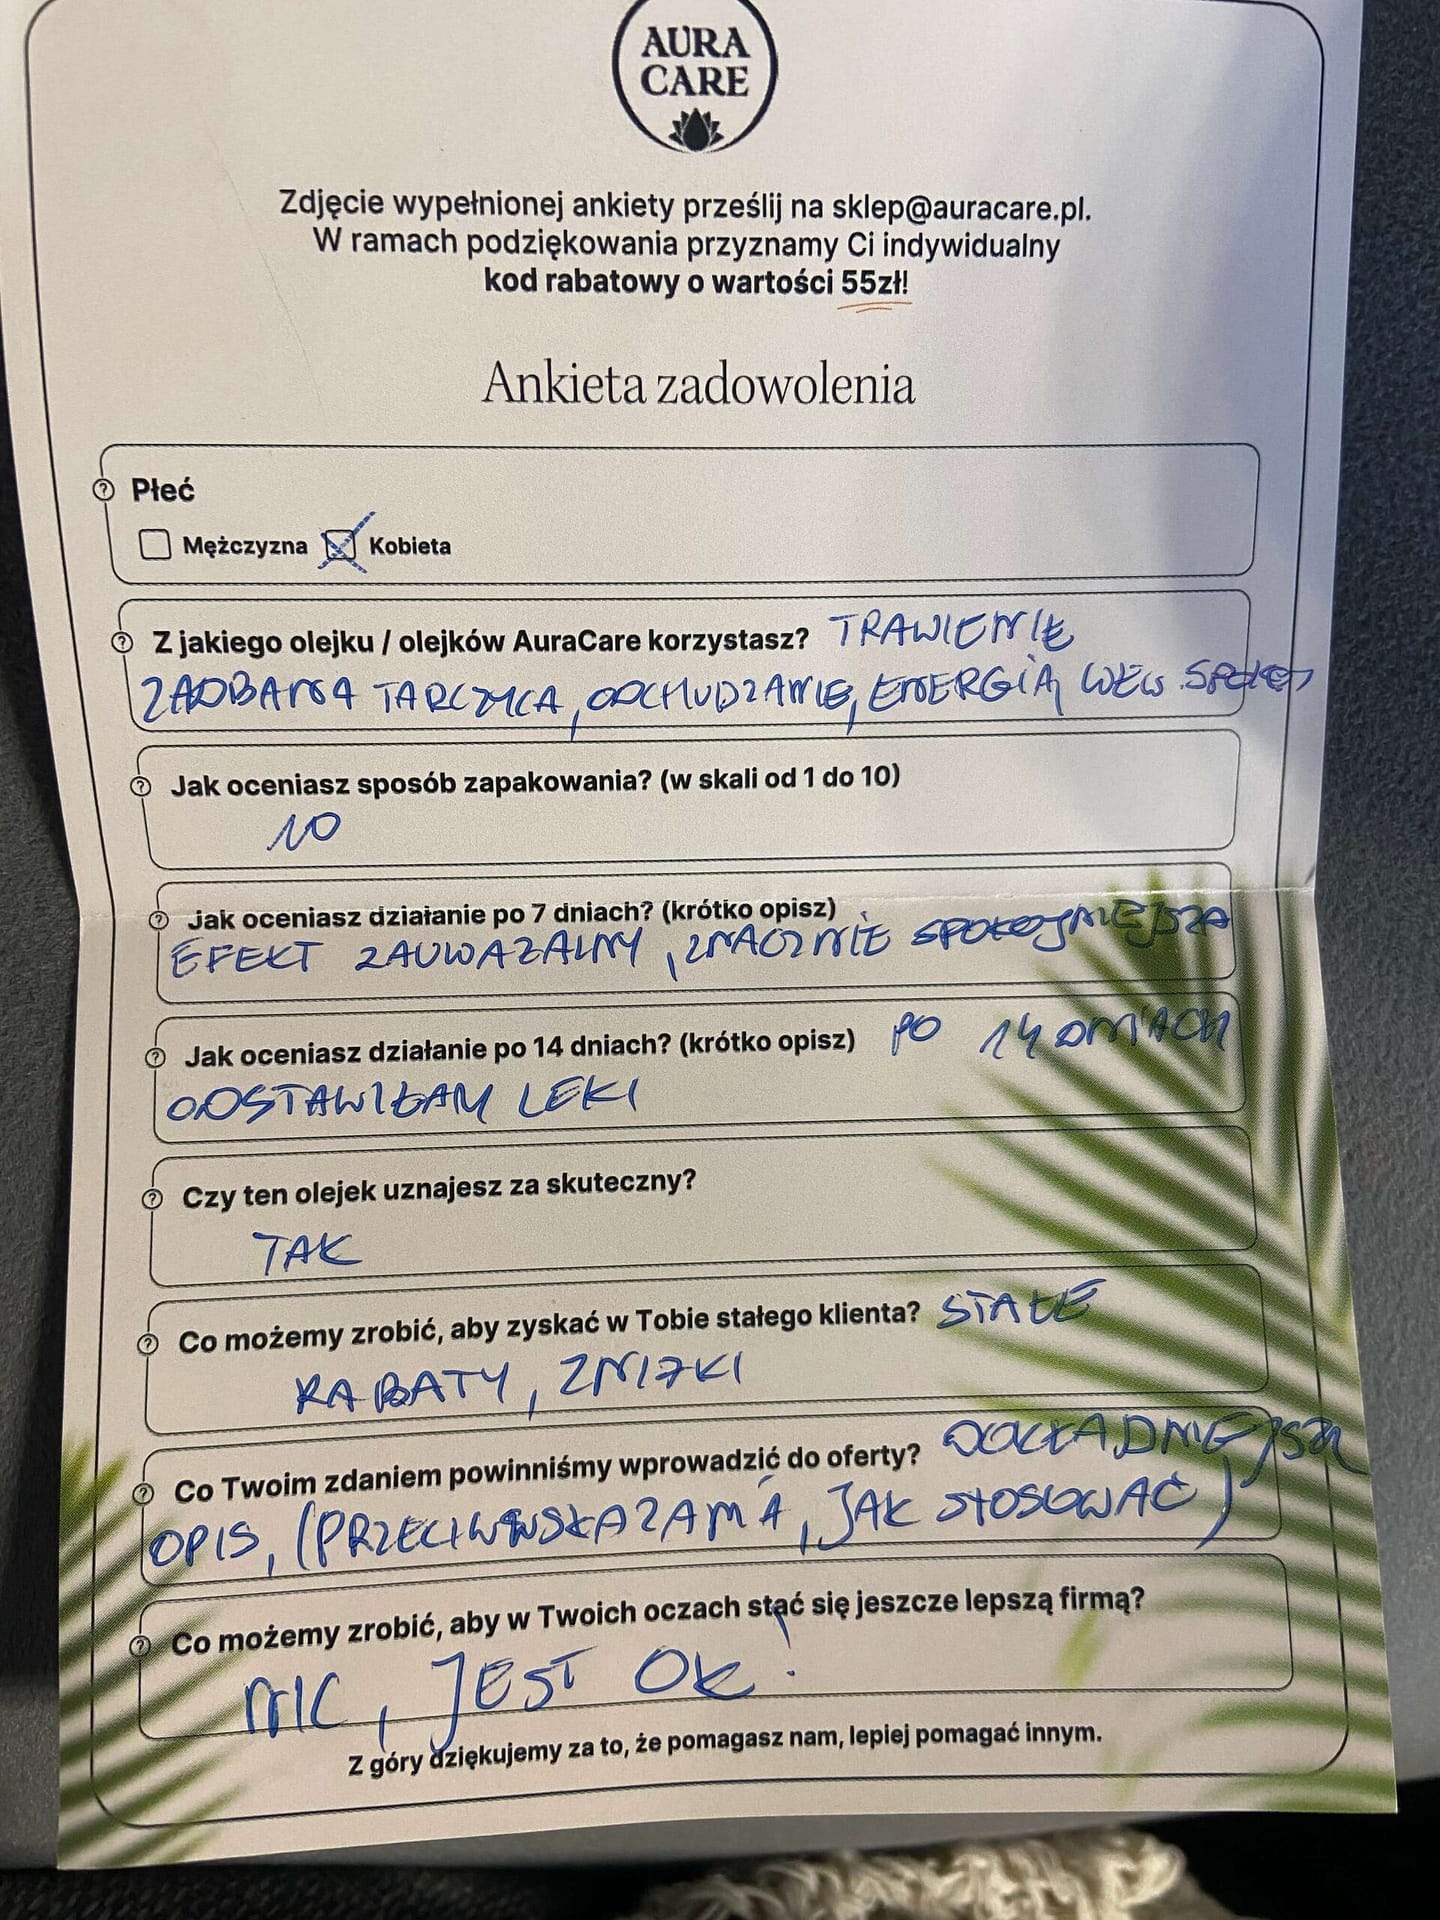 AURA
CARE
Zdjęcie wypełnionej ankiety prześlij na sklep@auracare.pl.
W ramach podziękowania przyznamy Ci indywidualny
kod rabatowy o wartości 55zł!
Ankieta zadowolenia
Płeć
Mężczyzna Kobieta
Z jakiego olejku / olejków AuraCare korzystasz? TRAWIENIE
ZADBANA TARCZYCA, ODCHUDZANIE, ENERGIA, WEW. SPOKÓJ
Jak oceniasz sposób zapakowania? (w skali od 1 do 10)
10
Jak oceniasz działanie po 7 dniach? (krótko opisz)
EFEKT ZAUWAŻALNY, ZNACZNIE SPOKOJNIEJSZA
Jak oceniasz działanie po 14 dniach? (krótko opisz) PO 14 DNIACH
ODSTAWIŁAM LEKI
Czy ten olejek uznajesz za skuteczny?
TAK
Co możemy zrobić, aby zyskać w Tobie stałego klienta? STAŁE
RABATY, ZNIŻKI
Co Twoim zdaniem powinniśmy wprowadzić do oferty? DOKŁADNIEJSZY
OPIS, (PRZECIWWSKAZANIA, JAK STOSOWAĆ)
Co możemy zrobić, aby w Twoich oczach stać się jeszcze lepszą firmą?
NIC, JEST OK!
Z góry dziękujemy za to, że pomagasz nam, lepiej pomagać innym.